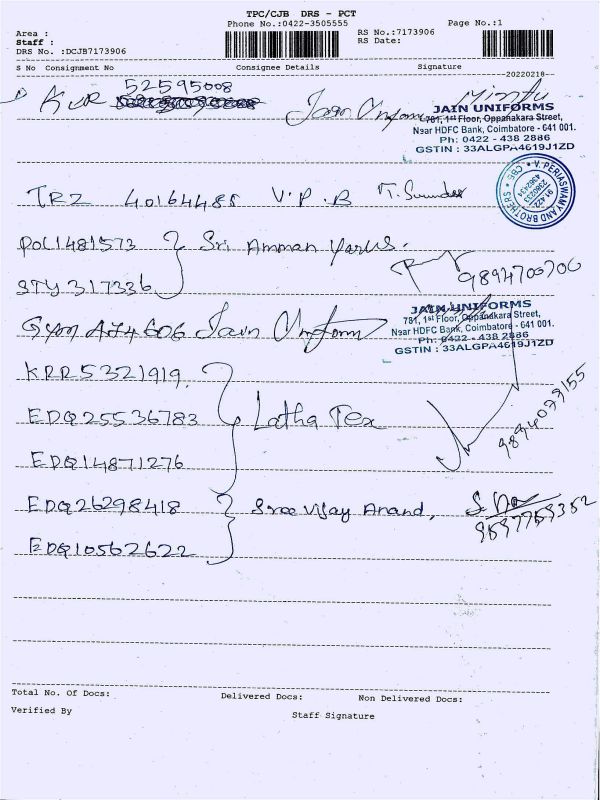 TPC/CJB DRS - PCT
Phone No.:0422-3505555 Page No.:1
Area :
Staff : RS No.:7173906
DRS No. :DCJB7173906 RS Date:
S No Consignment No Consignee Details Signature
20220218
KUR 52595008 Jain Uniform
JAIN UNIFORMS
781, 1st Floor, Oppanakara Street,
Near HDFC Bank, Coimbatore - 641 001.
Ph: 0422 - 438 2886
GSTIN : 33ALGPA4619J1ZD
V. PERIASWAMY AND BROTHERS * CBE *
TRZ 40164485 V.P.B
POL1481573 } Sri Amman Yarns.
STY 317336 9894700700
JAIN UNIFORMS
781, 1st Floor, Oppanakara Street,
Near HDFC Bank, Coimbatore - 641 001.
Ph: 0422 - 438 2886
GSTIN : 33ALGPA4619J1ZD
Jain Uniform
KRR5321919
EDQ25536783 } Latha Tex
EDQ14871276
EDQ26298418 } Sree Vijay Anand,
EDQ10562622
Total No. Of Docs: Delivered Docs: Non Delivered Docs:
Verified By Staff Signature